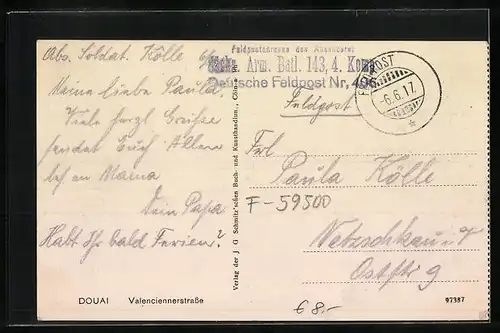 Abs. Soldat. Kölle
Feldpostadresse des Absenders:
Arm. Batl. 143, 4. Komp.
Deutsche Feldpost Nr, 406
FELDPOST
-6.6.17.
Meine liebe Paula.
Feldpost
Viele herzl. Grüsse
sendet Euch Allen
bes. Mama
Dein Papa
Habt Ihr bald Ferien?
Verlag der J. G. Schmitz'schen Buch- und Kunsthandlung, Cöln
Frl
Paula Kölle
F-59500
Netzschkau i. V
Oststr 9
€ 8.-
DOUAI Valenciennerstraße
97387